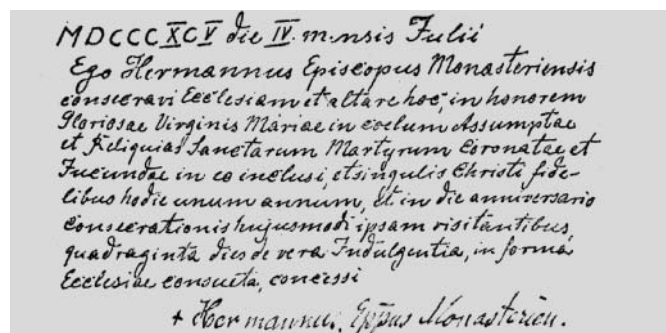 MDCCCXCV die IV. mensis Julii
Ego Hermannus Episcopus Monasteriensis
consecravi Ecclesiam et altare hoc, in honorem
Gloriosae Virginis Mariae in coelum Assumptae
et Reliquias Sanctarum Martyrum Coronatae et
Jucundae in eo inclusi, et singulis Christi fide-
libus hodie unum annum, et in die anniversario
consecrationis hujusmodi ipsam visitantibus,
quadraginta dies de vera Indulgentia, in forma
Ecclesiae consueta, concessi
+ Hermannus, Eppus Monasterien.